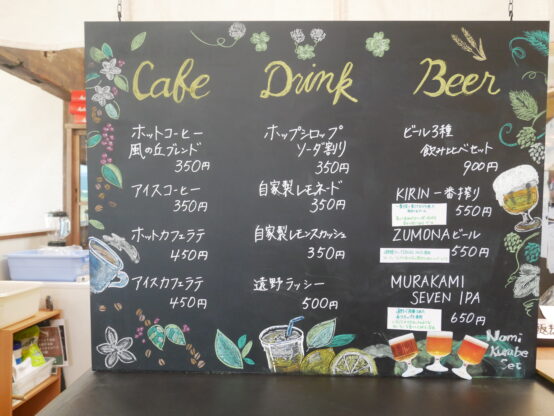 Cafe
ホットコーヒー
風の丘ブレンド
350円
アイスコーヒー
350円
ホットカフェラテ
450円
アイスカフェラテ
450円
Drink
ホップシロップ
ソーダ割り
350円
自家製レモネード
350円
自家製レモンスカッシュ
350円
遠野ラッシー
500円
Beer
ビール3種
飲み比べセット
900円
KIRIN 一番搾り
550円
ZUMONAビール
550円
MURAKAMI
SEVEN IPA
650円
Nomi
Kurabe
Set